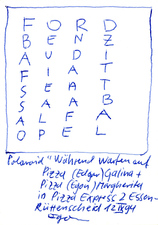 FORD
BENZ
AUDI
FIAT
SEAT
SAAB
ALFA
OPEL
Polaroid "Während Warten auf
Pizza (Edgar) Galina +
Pizza (Egon) Margherita
in Pizza Express 2 Essen-
Rüttenscheid 12 IX 94